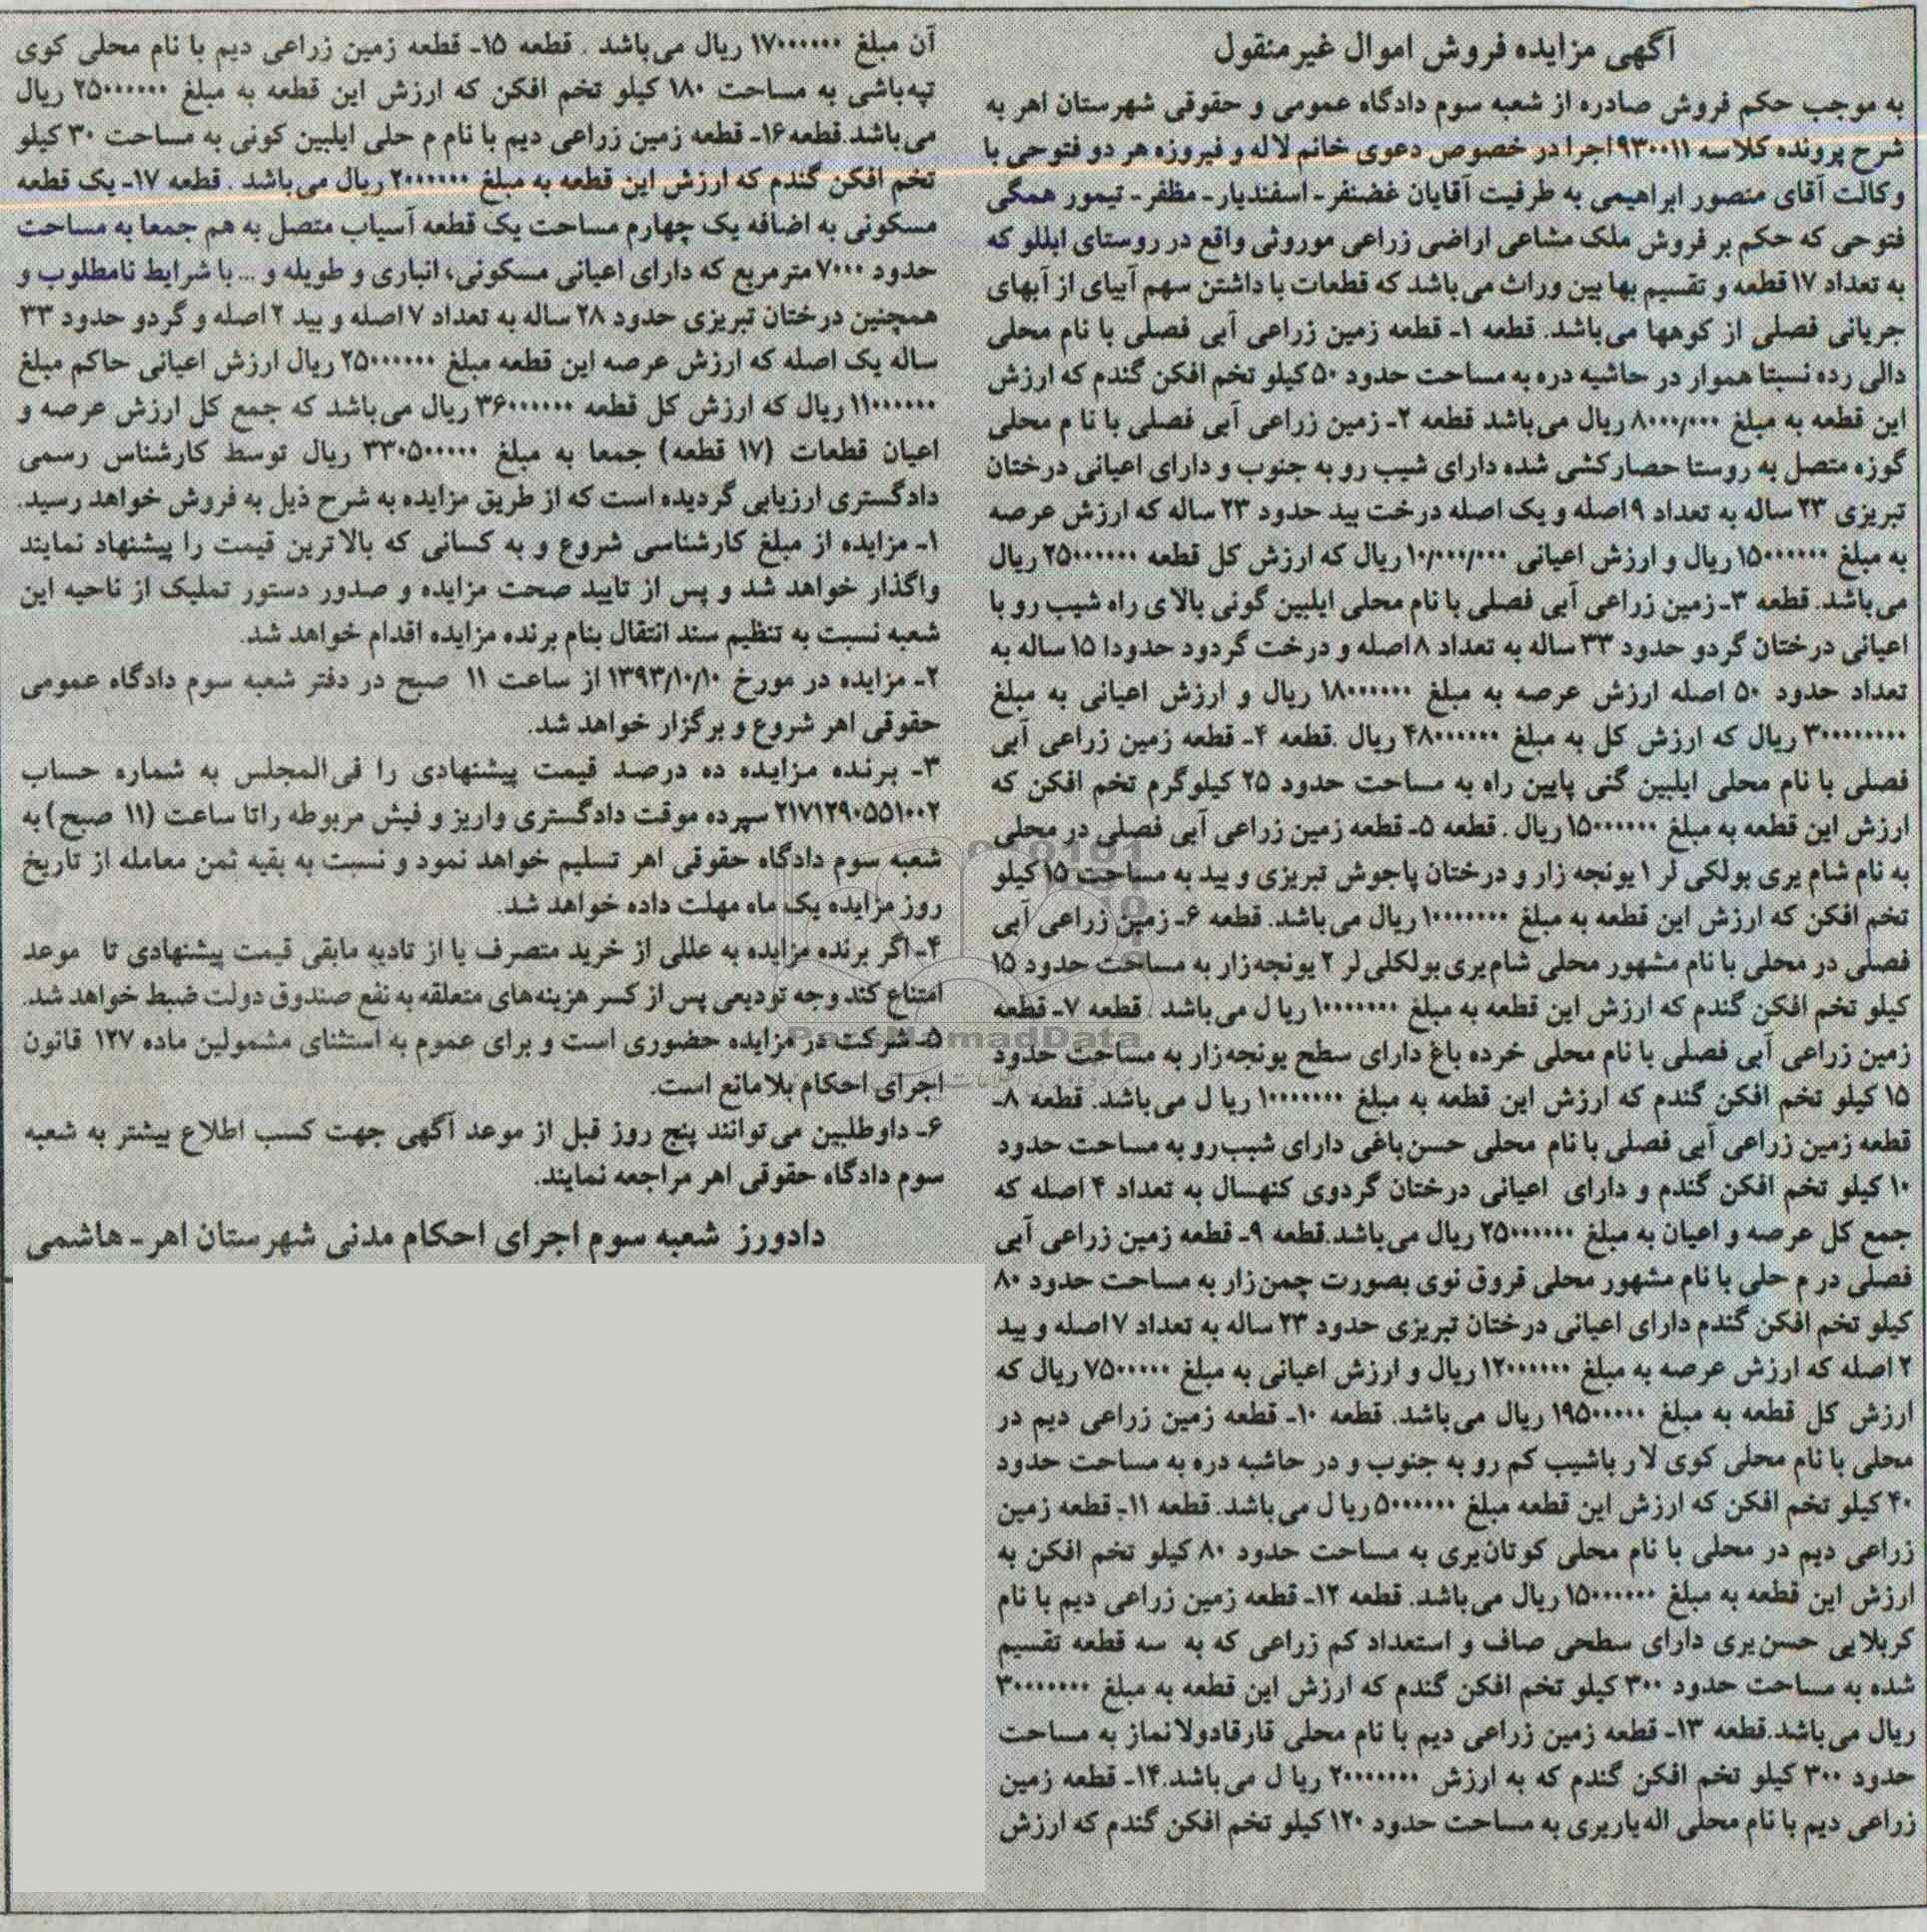 آگهی مزایده فروش اموال غیرمنقول
به موجب حکم فروش صادره از شعبه سوم دادگاه عمومی و حقوقی شهرستان اهر به
شرح پرونده کلاسه ۹۳۰۰۱۱ اجرا در خصوص دعوی خانم لاله و فیروزه هر دو فتوحی با
وکالت آقای منصور ابراهیمی به طرفیت آقایان غضنفر- اسفندیار- مظفر- تیمور همگی
فتوحی که حکم بر فروش ملک مشاعی اراضی زراعی موروثی واقع در روستای ایللو که
به تعداد ۱۷ قطعه و تقسیم بها بین وراث می‌باشد که قطعات با داشتن سهم آبیای از آبهای
جریانی فصلی از کوهها می‌باشد. قطعه ۱- قطعه زمین زراعی آبی فصلی با نام محلی
دالی رده نسبتا هموار در حاشیه دره به مساحت حدود ۵۰ کیلو تخم افکن گندم که ارزش
این قطعه به مبلغ ۸۰۰۰/۰۰۰ ریال می‌باشد قطعه ۲- زمین زراعی آبی فصلی با نا م محلی
گوزه متصل به روستا حصارکشی شده دارای شیب رو به جنوب و دارای اعیانی درختان
تبریزی ۲۳ ساله به تعداد ۹ اصله و یک اصله درخت بید حدود ۲۳ ساله که ارزش عرصه
به مبلغ ۱۵۰۰۰۰۰۰ ریال و ارزش اعیانی ۱۰/۰۰۰/۰۰۰ ریال که ارزش کل قطعه ۲۵۰۰۰۰۰۰ ریال
می‌باشد. قطعه ۳- زمین زراعی آبی فصلی با نام محلی ایلبین گونی بالای راه شیب رو با
اعیانی درختان گردو حدود ۳۳ ساله به تعداد ۸ اصله و درخت گردود حدودا ۱۵ ساله به
تعداد حدود ۵۰ اصله ارزش عرصه به مبلغ ۱۸۰۰۰۰۰۰ ریال و ارزش اعیانی به مبلغ
۳۰۰۰۰۰۰۰۰ ریال که ارزش کل به مبلغ ۴۸۰۰۰۰۰۰ ریال .قطعه ۴- قطعه زمین زراعی آبی
فصلی با نام محلی ایلبین گنی پایین راه به مساحت حدود ۲۵ کیلوگرم تخم افکن که
ارزش این قطعه به مبلغ ۱۵۰۰۰۰۰۰ ریال . قطعه ۵- قطعه زمین زراعی آبی فصلی در محلی
به نام شام یری بولکی لر ۱ یونجه زار و درختان پاجوش تبریزی و بید به مساحت ۱۵ کیلو
تخم افکن که ارزش این قطعه به مبلغ ۱۰۰۰۰۰۰۰ ریال می‌باشد. قطعه ۶- زمین زراعی آبی
فصلی در محلی با نام مشهور محلی شام‌یری‌بولکلی‌لر ۲ یونجه‌زار به مساحت حدود ۱۵
کیلو تخم افکن گندم که ارزش این قطعه به مبلغ ۱۰۰۰۰۰۰۰ ریا ل می‌باشد . قطعه ۷- قطعه
زمین زراعی آبی فصلی با نام محلی خرده باغ دارای سطح یونجه‌زار به مساحت حدود
۱۵ کیلو تخم افکن گندم که ارزش این قطعه به مبلغ ۱۰۰۰۰۰۰۰ ریا ل می‌باشد. قطعه ۸-
قطعه زمین زراعی آبی فصلی با نام محلی حسن‌باغی دارای شیب‌رو به مساحت حدود
۱۰ کیلو تخم افکن گندم و دارای اعیانی درختان گردوی کنهسال به تعداد ۴ اصله که
جمع کل عرصه و اعیان به مبلغ ۲۵۰۰۰۰۰۰ ریال می‌باشد.قطعه ۹- قطعه زمین زراعی آبی
فصلی در م حلی با نام مشهور محلی قروق نوی بصورت چمن‌زار به مساحت حدود ۸۰
کیلو تخم افکن گندم دارای اعیانی درختان تبریزی حدود ۲۳ ساله به تعداد ۷ اصله و بید
۲ اصله که ارزش عرصه به مبلغ ۱۲۰۰۰۰۰۰ ریال و ارزش اعیانی به مبلغ ۷۵۰۰۰۰۰ ریال که
ارزش کل قطعه به مبلغ ۱۹۵۰۰۰۰۰ ریال می‌باشد. قطعه ۱۰- قطعه زمین زراعی دیم در
محلی با نام محلی کوی لار باشیب کم رو به جنوب و در حاشیه دره به مساحت حدود
۴۰ کیلو تخم افکن که ارزش این قطعه مبلغ ۵۰۰۰۰۰۰ ریا ل می‌باشد. قطعه ۱۱- قطعه زمین
زراعی دیم در محلی با نام محلی کوتان‌یری به مساحت حدود ۸۰ کیلو تخم افکن به
ارزش این قطعه به مبلغ ۱۵۰۰۰۰۰۰ ریال می‌باشد. قطعه ۱۲- قطعه زمین زراعی دیم با نام
کربلایی حسن‌یری دارای سطحی صاف و استعداد کم زراعی که به سه قطعه تقسیم
شده به مساحت حدود ۳۰۰ کیلو تخم افکن گندم که ارزش این قطعه به مبلغ ۳۰۰۰۰۰۰۰
ریال می‌باشد.قطعه ۱۳- قطعه زمین زراعی دیم با نام محلی قارقادولانماز به مساحت
حدود ۳۰۰ کیلو تخم افکن گندم که به ارزش ۲۰۰۰۰۰۰۰ ریا ل می‌باشد.۱۴- قطعه زمین
زراعی دیم با نام محلی اله‌یاریری به مساحت حدود ۱۲۰ کیلو تخم افکن گندم که ارزش
آن مبلغ ۱۷۰۰۰۰۰۰ ریال می‌باشد . قطعه ۱۵- قطعه زمین زراعی دیم با نام محلی کوی
تپه‌باشی به مساحت ۱۸۰ کیلو تخم افکن که ارزش این قطعه به مبلغ ۲۵۰۰۰۰۰۰ ریال
می‌باشد.قطعه ۱۶- قطعه زمین زراعی دیم با نام م حلی ایلبین کونی به مساحت ۳۰ کیلو
تخم افکن گندم که ارزش این قطعه به مبلغ ۲۰۰۰۰۰۰ ریال می‌باشد . قطعه ۱۷- یک قطعه
مسکونی به اضافه یک چهارم مساحت یک قطعه آسیاب متصل به هم جمعا به مساحت
حدود ۷۰۰۰ مترمربع که دارای اعیانی مسکونی، انباری و طویله و ... با شرایط نامطلوب و
همچنین درختان تبریزی حدود ۲۸ ساله به تعداد ۷ اصله و بید ۲ اصله و گردو حدود ۳۳
ساله یک اصله که ارزش عرصه این قطعه مبلغ ۲۵۰۰۰۰۰۰ ریال ارزش اعیانی حاکم مبلغ
۱۱۰۰۰۰۰۰ ریال که ارزش کل قطعه ۳۶۰۰۰۰۰۰ ریال می‌باشد که جمع کل ارزش عرصه و
اعیان قطعات (۱۷ قطعه) جمعا به مبلغ ۳۳۰۵۰۰۰۰۰ ریال توسط کارشناس رسمی
دادگستری ارزیابی گردیده است که از طریق مزایده به شرح ذیل به فروش خواهد رسید.
۱- مزایده از مبلغ کارشناسی شروع و به کسانی که بالاترین قیمت را پیشنهاد نمایند
واگذار خواهد شد و پس از تایید صحت مزایده و صدور دستور تملیک از ناحیه این
شعبه نسبت به تنظیم سند انتقال بنام برنده مزایده اقدام خواهد شد.
۲- مزایده در مورخ ۱۳۹۳/۱۰/۱۰ از ساعت ۱۱ صبح در دفتر شعبه سوم دادگاه عمومی
حقوقی اهر شروع و برگزار خواهد شد.
۳- برنده مزایده ده درصد قیمت پیشنهادی را فی‌المجلس به شماره حساب
۲۱۷۱۲۹۰۵۵۱۰۰۲ سپرده موقت دادگستری واریز و فیش مربوطه راتا ساعت (۱۱ صبح) به
شعبه سوم دادگاه حقوقی اهر تسلیم خواهد نمود و نسبت به بقیه ثمن معامله از تاریخ
روز مزایده یک ماه مهلت داده خواهد شد.
۴- اگر برنده مزایده به عللی از خرید متصرف یا از تادیه مابقی قیمت پیشنهادی تا موعد
امتناع کند وجه تودیعی پس از کسر هزینه‌های متعلقه به نفع صندوق دولت ضبط خواهد شد.
۵- شرکت در مزایده حضوری است و برای عموم به استثنای مشمولین ماده ۱۲۷ قانون
اجرای احکام بلامانع است.
۶- داوطلبین می‌توانند پنج روز قبل از موعد آگهی جهت کسب اطلاع بیشتر به شعبه
سوم دادگاه حقوقی اهر مراجعه نمایند.
دادورز شعبه سوم اجرای احکام مدنی شهرستان اهر- هاشمی